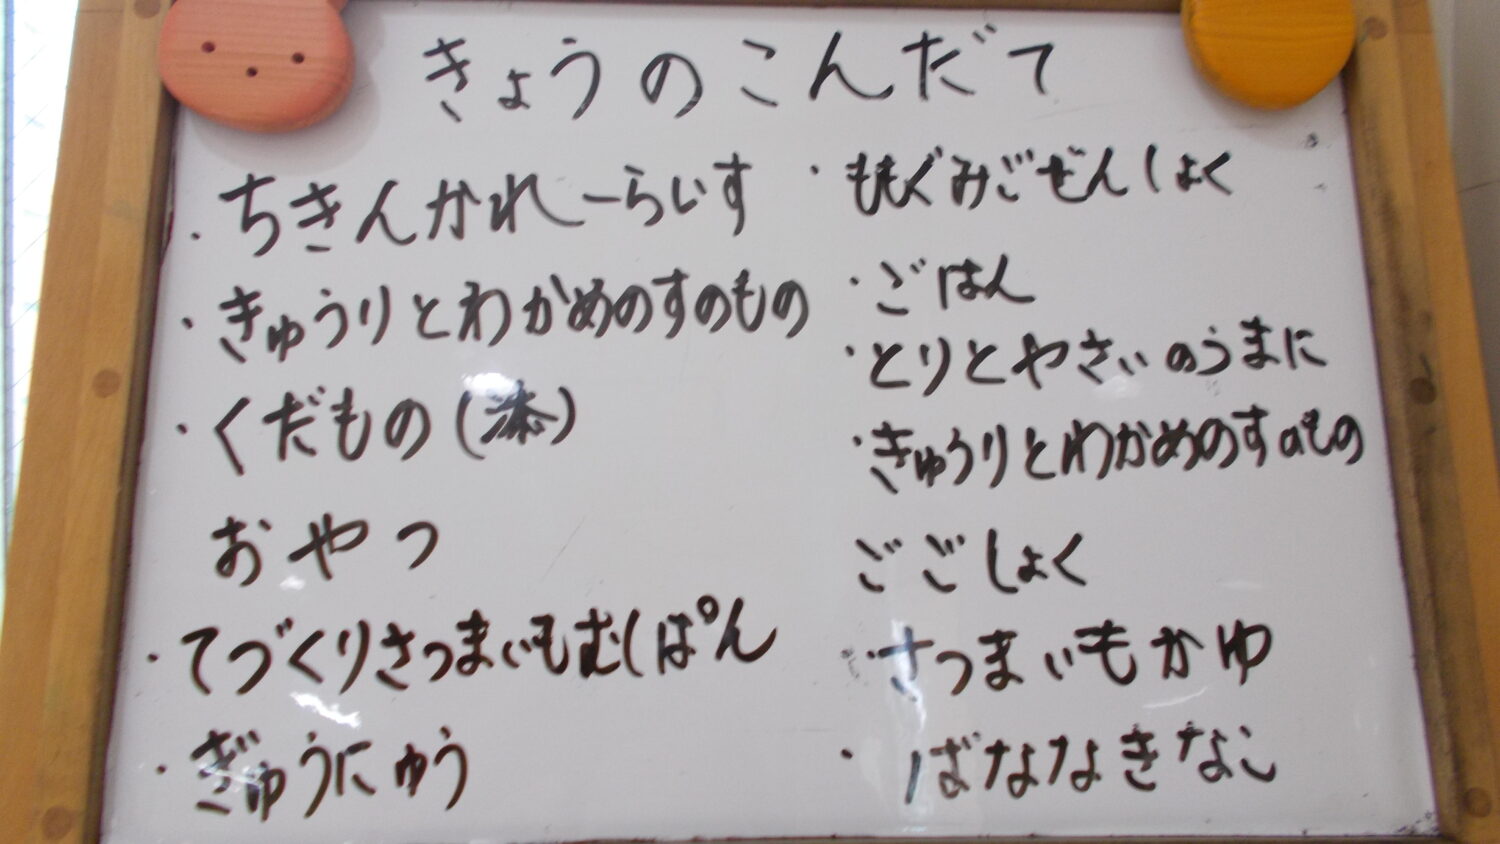 きょうのこんだて
・ちきんかれーらいす
・きゅうりとわかめのすのもの
・くだもの
おやつ
・てづくりさつまいもむしぱん
・ぎゅうにゅう
・もぐもぐみごぜんしょく
・ごはん
・とりとやさいのうまに
・きゅうりとわかめのすのもの
ごごしょく
・さつまいもかゆ
・ばななきなこ